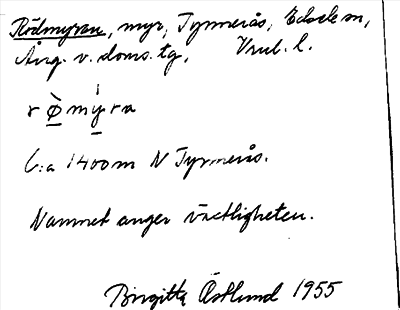 Rödmyran, myr, Tyrmerås, Edsele sn,
Ång. v. doms. tg,
r ø̀ mý ra
C:a 1400 m N Tyrmerås.
Namnet anger växtligheten.
Birgitta Östlund 1955